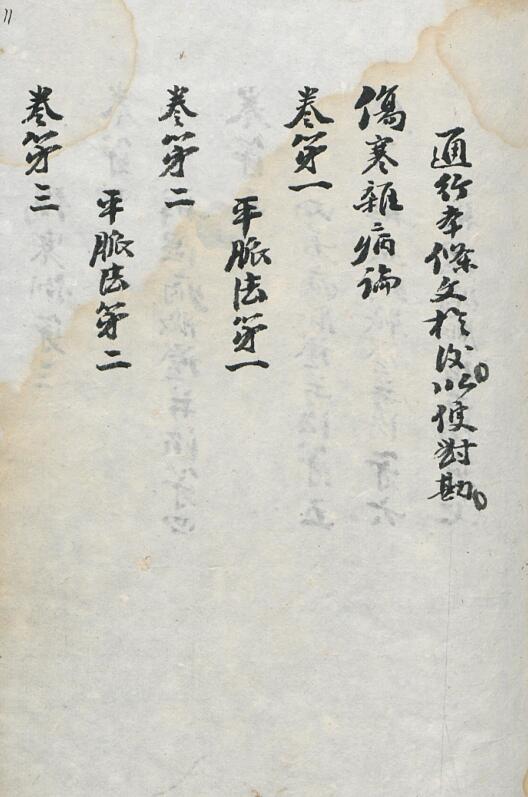 11
通行本條文於後。以便對勘。
傷寒雜病論
卷第一
平脈法第一
卷第二
平脈法第二
卷第三